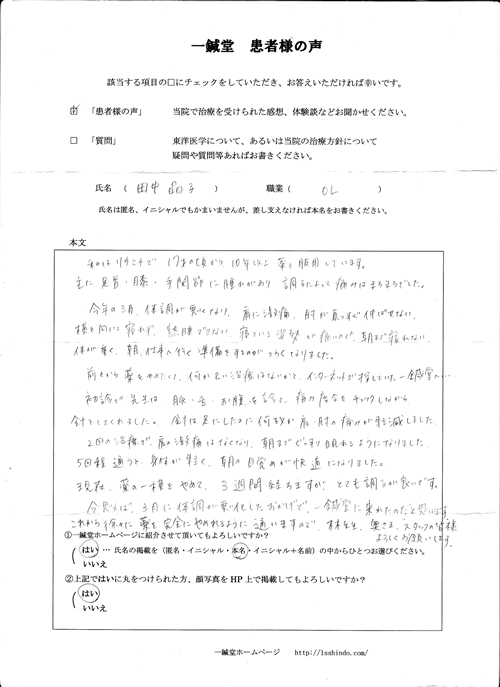 一鍼堂 患者様の声
該当する項目の□にチェックをしていただき、お答えいただければ幸いです。
☑ 「患者様の声」 当院で治療を受けられた感想、体験談などお聞かせください。
□ 「質問」 東洋医学について、あるいは当院の治療方針について
疑問や質問等あればお書きください。
氏名 ( 田中 晶子 ) 職業 ( OL )
氏名は匿名、イニシャルでもかまいませんが、差し支えなければ本名をお書きください。
本文
私はリウマチで 17才の頃から 10年以上 薬を服用しています。
主に足首・膝・手関節に腫れがあり、調子によって痛みはまちまちでした。
今年の3月、体調が悪くなり、肩に激痛、肘が真っすぐ伸ばせない、
横を向いて寝れず、熟睡できない 寝ている姿勢が痛いので、朝まで寝れない、
体が重く、朝、仕事へ行く準備をするのがつらくなりました。
前から薬をやめたくて、何か良い治療はないかと、インターネットで探していた一鍼堂へ…
初診で先生は、脈・舌・お腹を診て、痛み度などチェックしながら
針をしてくれました。 針は足にしたのに何故か肩・肘の痛みが軽減しました。
2回の治療で、肩の激痛はなくなり、朝までぐっすり眠れるようになりました。
5回程通うと、身体が軽く、朝の目覚めが快適になりました。
現在、薬の一種をやめて、3週間経ちますが、とても調子が良いです。
今思えば、3月に体調が悪化したおかげで、一鍼堂に来れたのだと思います。
これから徐々に薬を完全にやめれるように通いますので、林先生、奥さま、スタッフの皆様
よろしくお願いします。
①一鍼堂ホームページに紹介させて頂いてもよろしいですか?
はい … 氏名の掲載を(匿名・イニシャル・本名・イニシャル+名前)の中からひとつお選びください。
いいえ
②上記ではいに丸をつけられた方、顔写真をHP上で掲載してもよろしいですか?
はい
いいえ
一鍼堂ホームページ http://1sshindo.com/